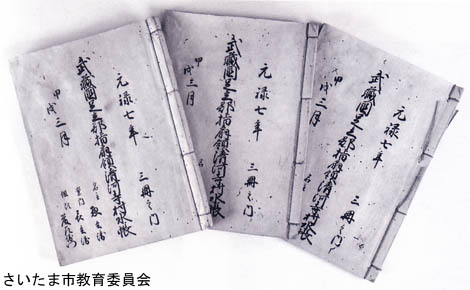 元禄七年　三冊之内
武藏國足立郡指扇領清河寺村水帳
甲戌三月
元禄七年　三冊之内
武藏國足立郡指扇領清河寺村水帳
甲戌三月
元禄七年　三冊之内
武藏國足立郡指扇領清河寺村水帳
甲戌三月
名主
さいたま市教育委員会